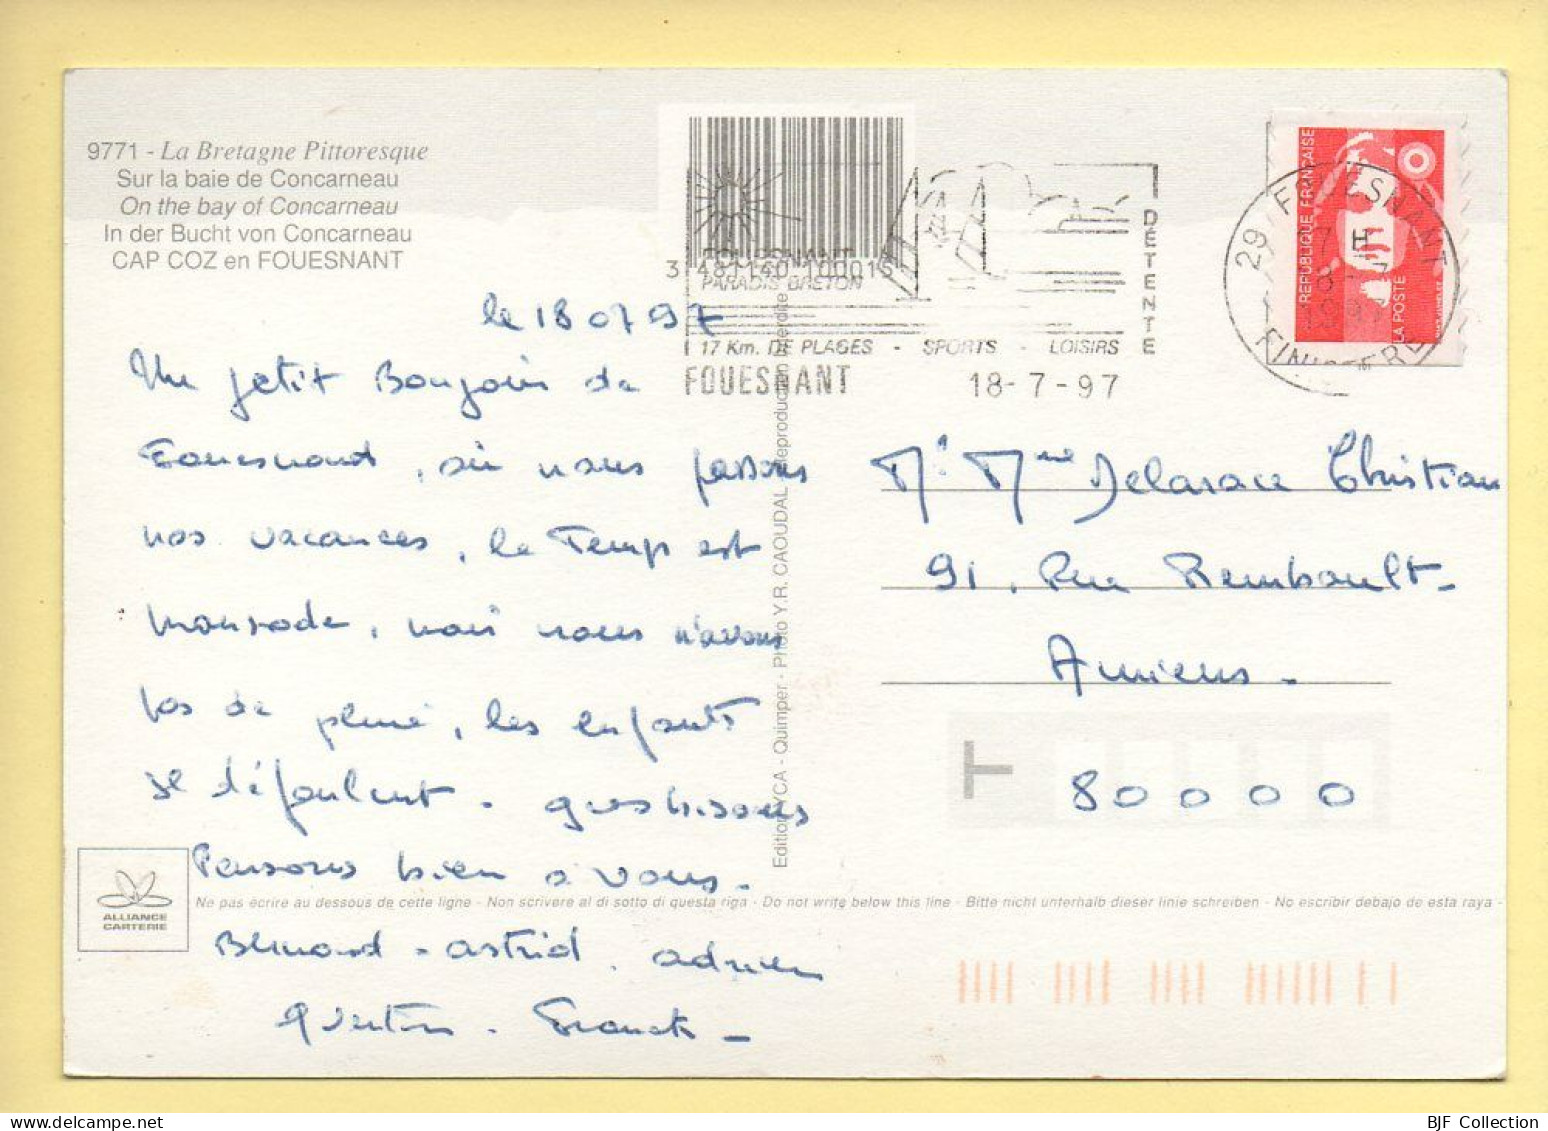 9771 - La Bretagne Pittoresque
Sur la baie de Concarneau
On the bay of Concarneau
In der Bucht von Concarneau
CAP COZ en FOUESNANT
3 481140 100015
FOUESNANT
PARADIS BRETON
17 Km. DE PLAGES - SPORTS - LOISIRS
DÉTENTE
FOUESNANT 18-7-97
RÉPUBLIQUE FRANÇAISE
LA POSTE
29 FOUESNANT
17 H
FINISTERE
le 18 07 97
Un petit Bonjour de
Fouesnant, où nous passons
nos vacances, le Temps est
maussade, mais nous n'avons
pas de pluie, les enfants
se défoulent - 
Pensons bien à vous.
Bernard - astrid, adrien
Quentin - Franck -
Mr Mme Delarace Christian
91, Rue Rembault-
Amiens -
T
80000
Edition YCA - Quimper - Photo Y.R. CAOUDAL - Reproduction interdite
ALLIANCE
CARTERIE
Ne pas écrire au dessous de cette ligne - Non scrivere al di sotto di questa riga - Do not write below this line - Bitte nicht unterhalb dieser linie schreiben - No escribir debajo de esta raya -
BJF Collection